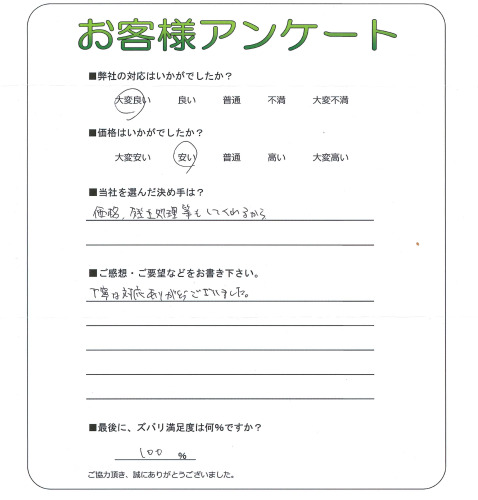 お客様アンケート
■弊社の対応はいかがでしたか？
大変良い 良い 普通 不満 大変不満
■価格はいかがでしたか？
大変安い 安い 普通 高い 大変高い
■当社を選んだ決め手は？
価格、残土処理等もしてくれるから
■ご感想・ご要望などをお書き下さい。
丁寧な対応ありがとうございました。
■最後に、ズバリ満足度は何%ですか？
100 %
ご協力頂き、誠にありがとうございました。